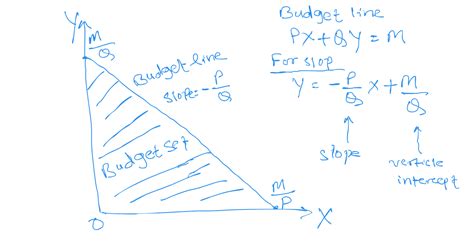 Y
M/Q
Budget line
slope = -P/Q
Budget set
O
M/P
X
Budget line
PX + QY = M
For slop
Y = -P/Q X + M/Q
slope
verticle
intercept